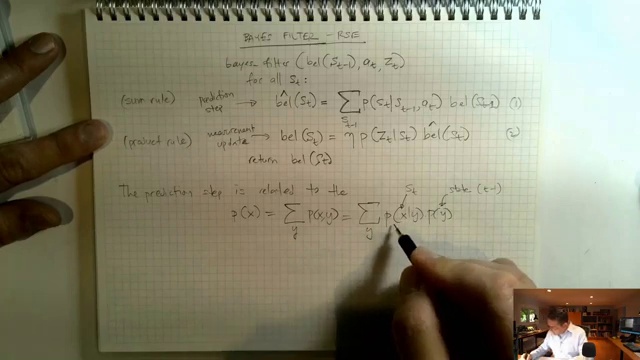 BAYES FILTER - RSE
bayes filter ( bel(St-1), at, Zt )
for all St :
(sum rule) prediction step → b̂el(St) = ∑St-1 p(St|St-1, at) bel(St-1) (1)
(product rule) measurement update → bel(St) = η p(Zt|St) b̂el(St) (2)
return bel(St)
The prediction step is related to the
St state (t-1)
p(x) = ∑y p(x,y) = ∑y p(x|y) p(y)